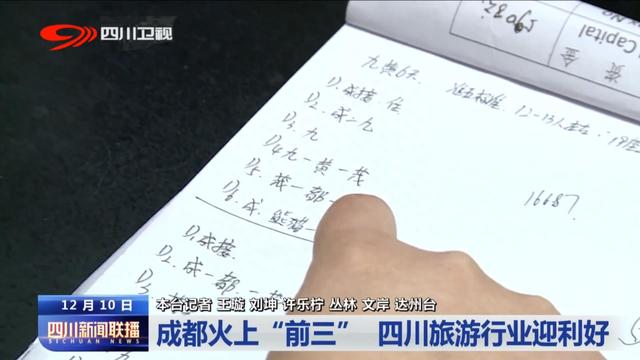 四川卫视
Capital
资金
九黄6天 准五标准 12-13人左右
D1.成接.住
D2.成一九
D3.九
D4九一黄一茂
D5.茂一都一
D6.成.熊猫一
16687
D1.成接.
D2.成一都.一
12月10日
本台记者 王璇 刘坤 许乐柠 丛林 文岸 达州台
四川新闻联播
SICHUAN NEWS
成都火上“前三” 四川旅游行业迎利好